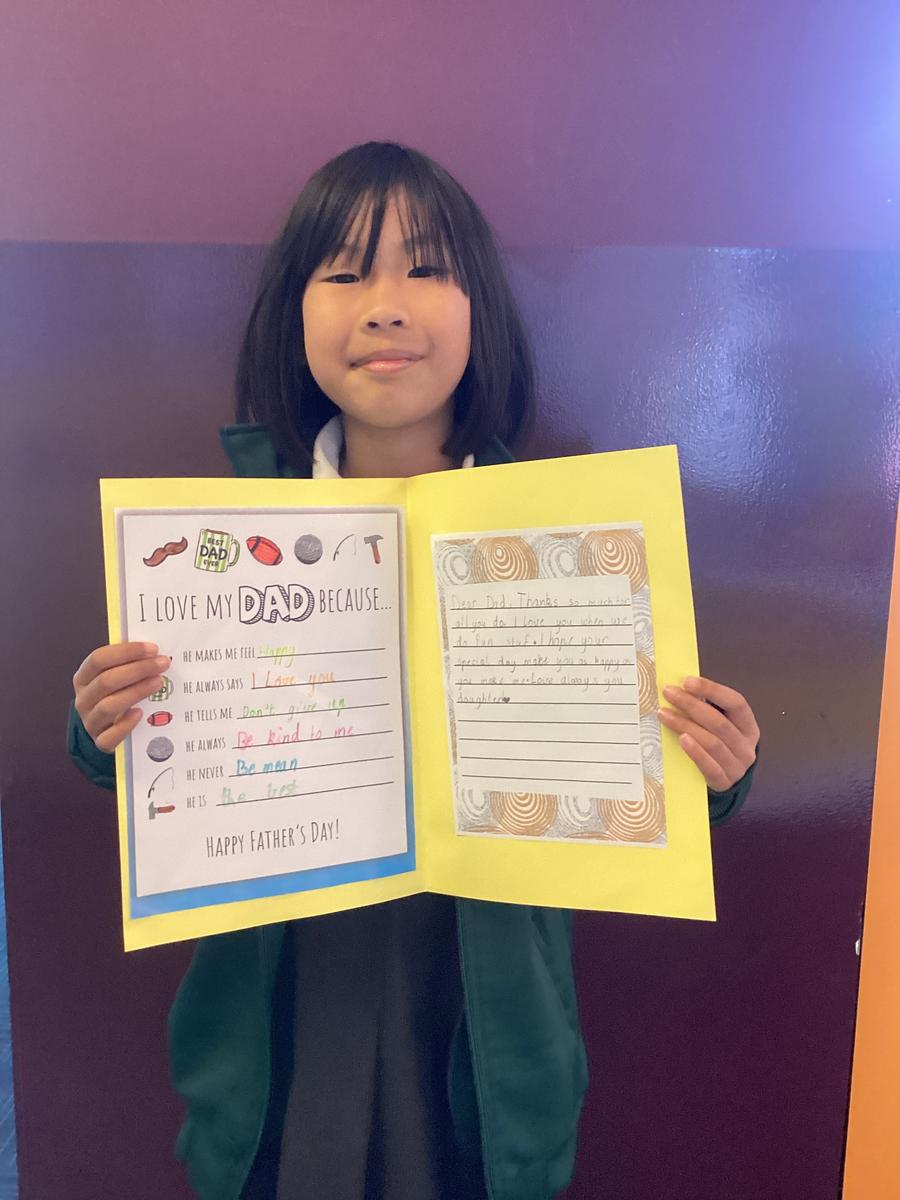 BEST
DAD
EVER
I LOVE MY DAD BECAUSE...
HE MAKES ME FEEL Happy
HE ALWAYS SAYS I Love you
HE TELLS ME Don't give up
HE ALWAYS Be kind to me
HE NEVER Be mean
HE IS the best
HAPPY FATHER'S DAY!
Dear Dad, Thanks so much for
all you do. I love you when we
do fun stuf. I hope your
special day make you as happy as
you make me. Love always you
daughter